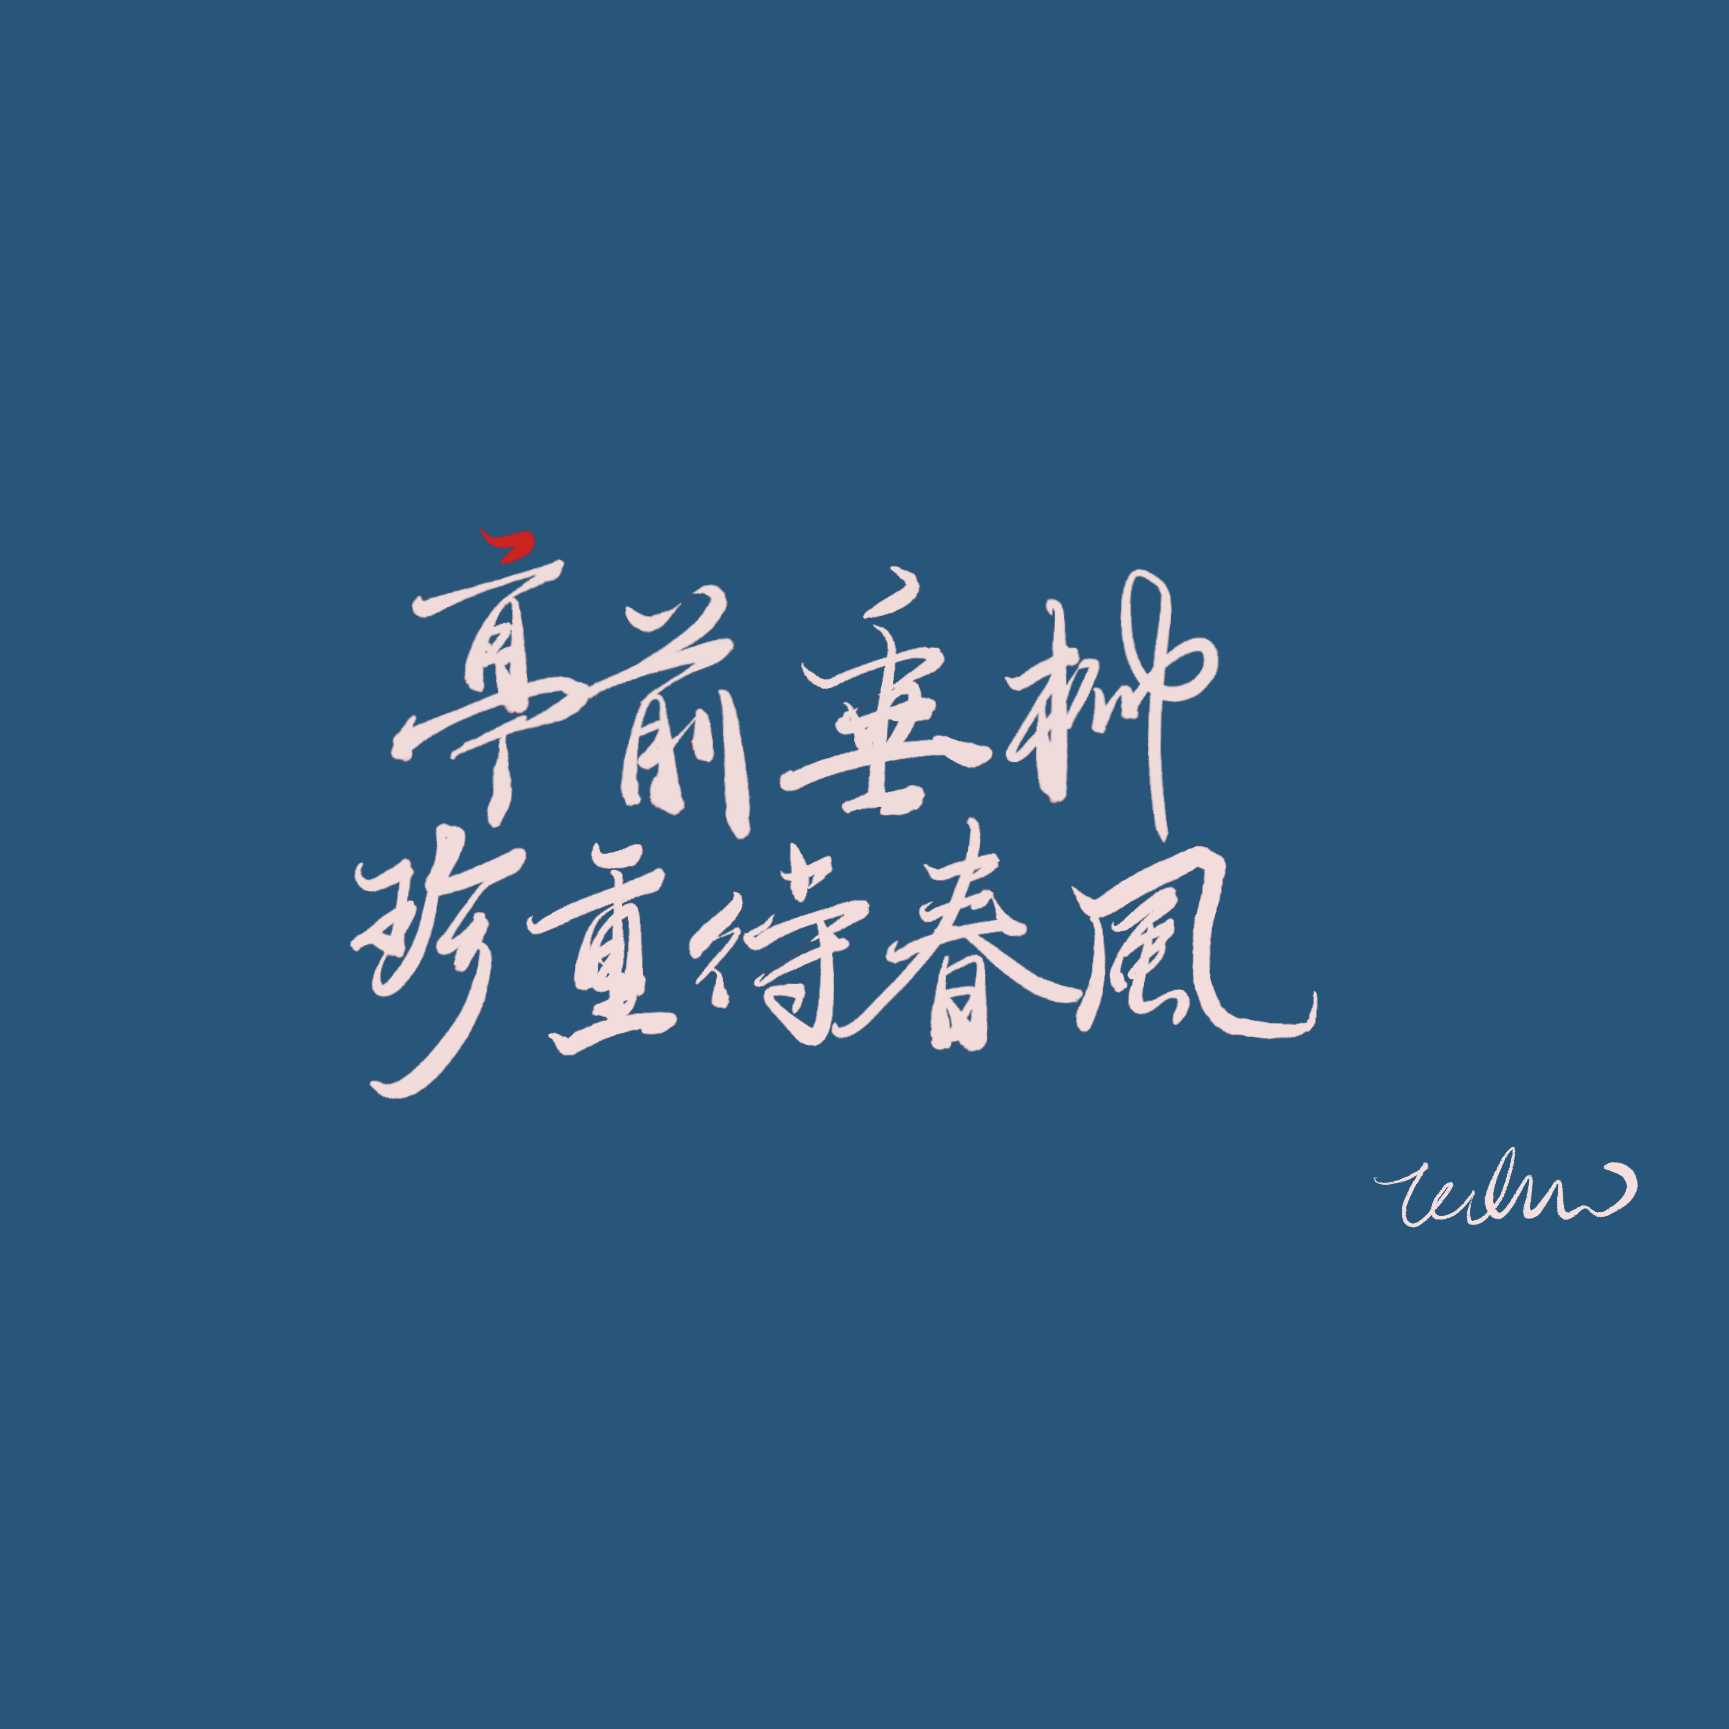 亭前垂柳
珍重待春風